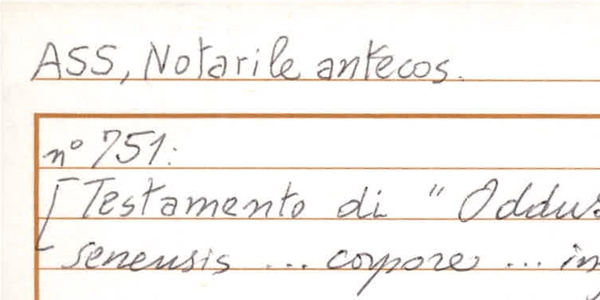 ASS, Notarile antecos.
n° 751:
[Testamento di "Oddus
senensis ... corpore ... in